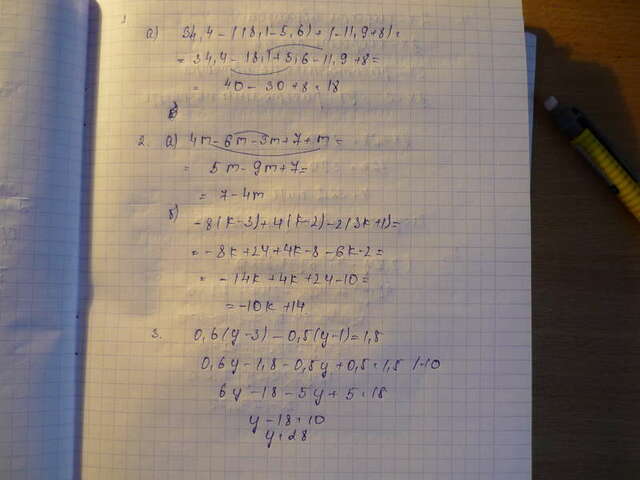 1
а) 34,4 - (18,1 - 5,6) + (-11,9 + 8) =
= 34,4 - 18,1 + 5,6 - 11,9 + 8 =
= 40 - 30 + 8 = 18
б
2. а) 4m - 6m - 3m + 7 + m =
= 5m - 9m + 7 =
= 7 - 4m
б)
-8(k-3) + 4(k-2) - 2(3k+1) =
= -8k + 24 + 4k - 8 - 6k - 2 =
= -14k + 4k + 24 - 10 =
= -10k + 14
3. 0,6(y-3) - 0,5(y-1) = 1,5
0,6y - 1,8 - 0,5y + 0,5 = 1,5 /·10
6y - 18 - 5y + 5 = 15
y - 18 = 10
y = 28